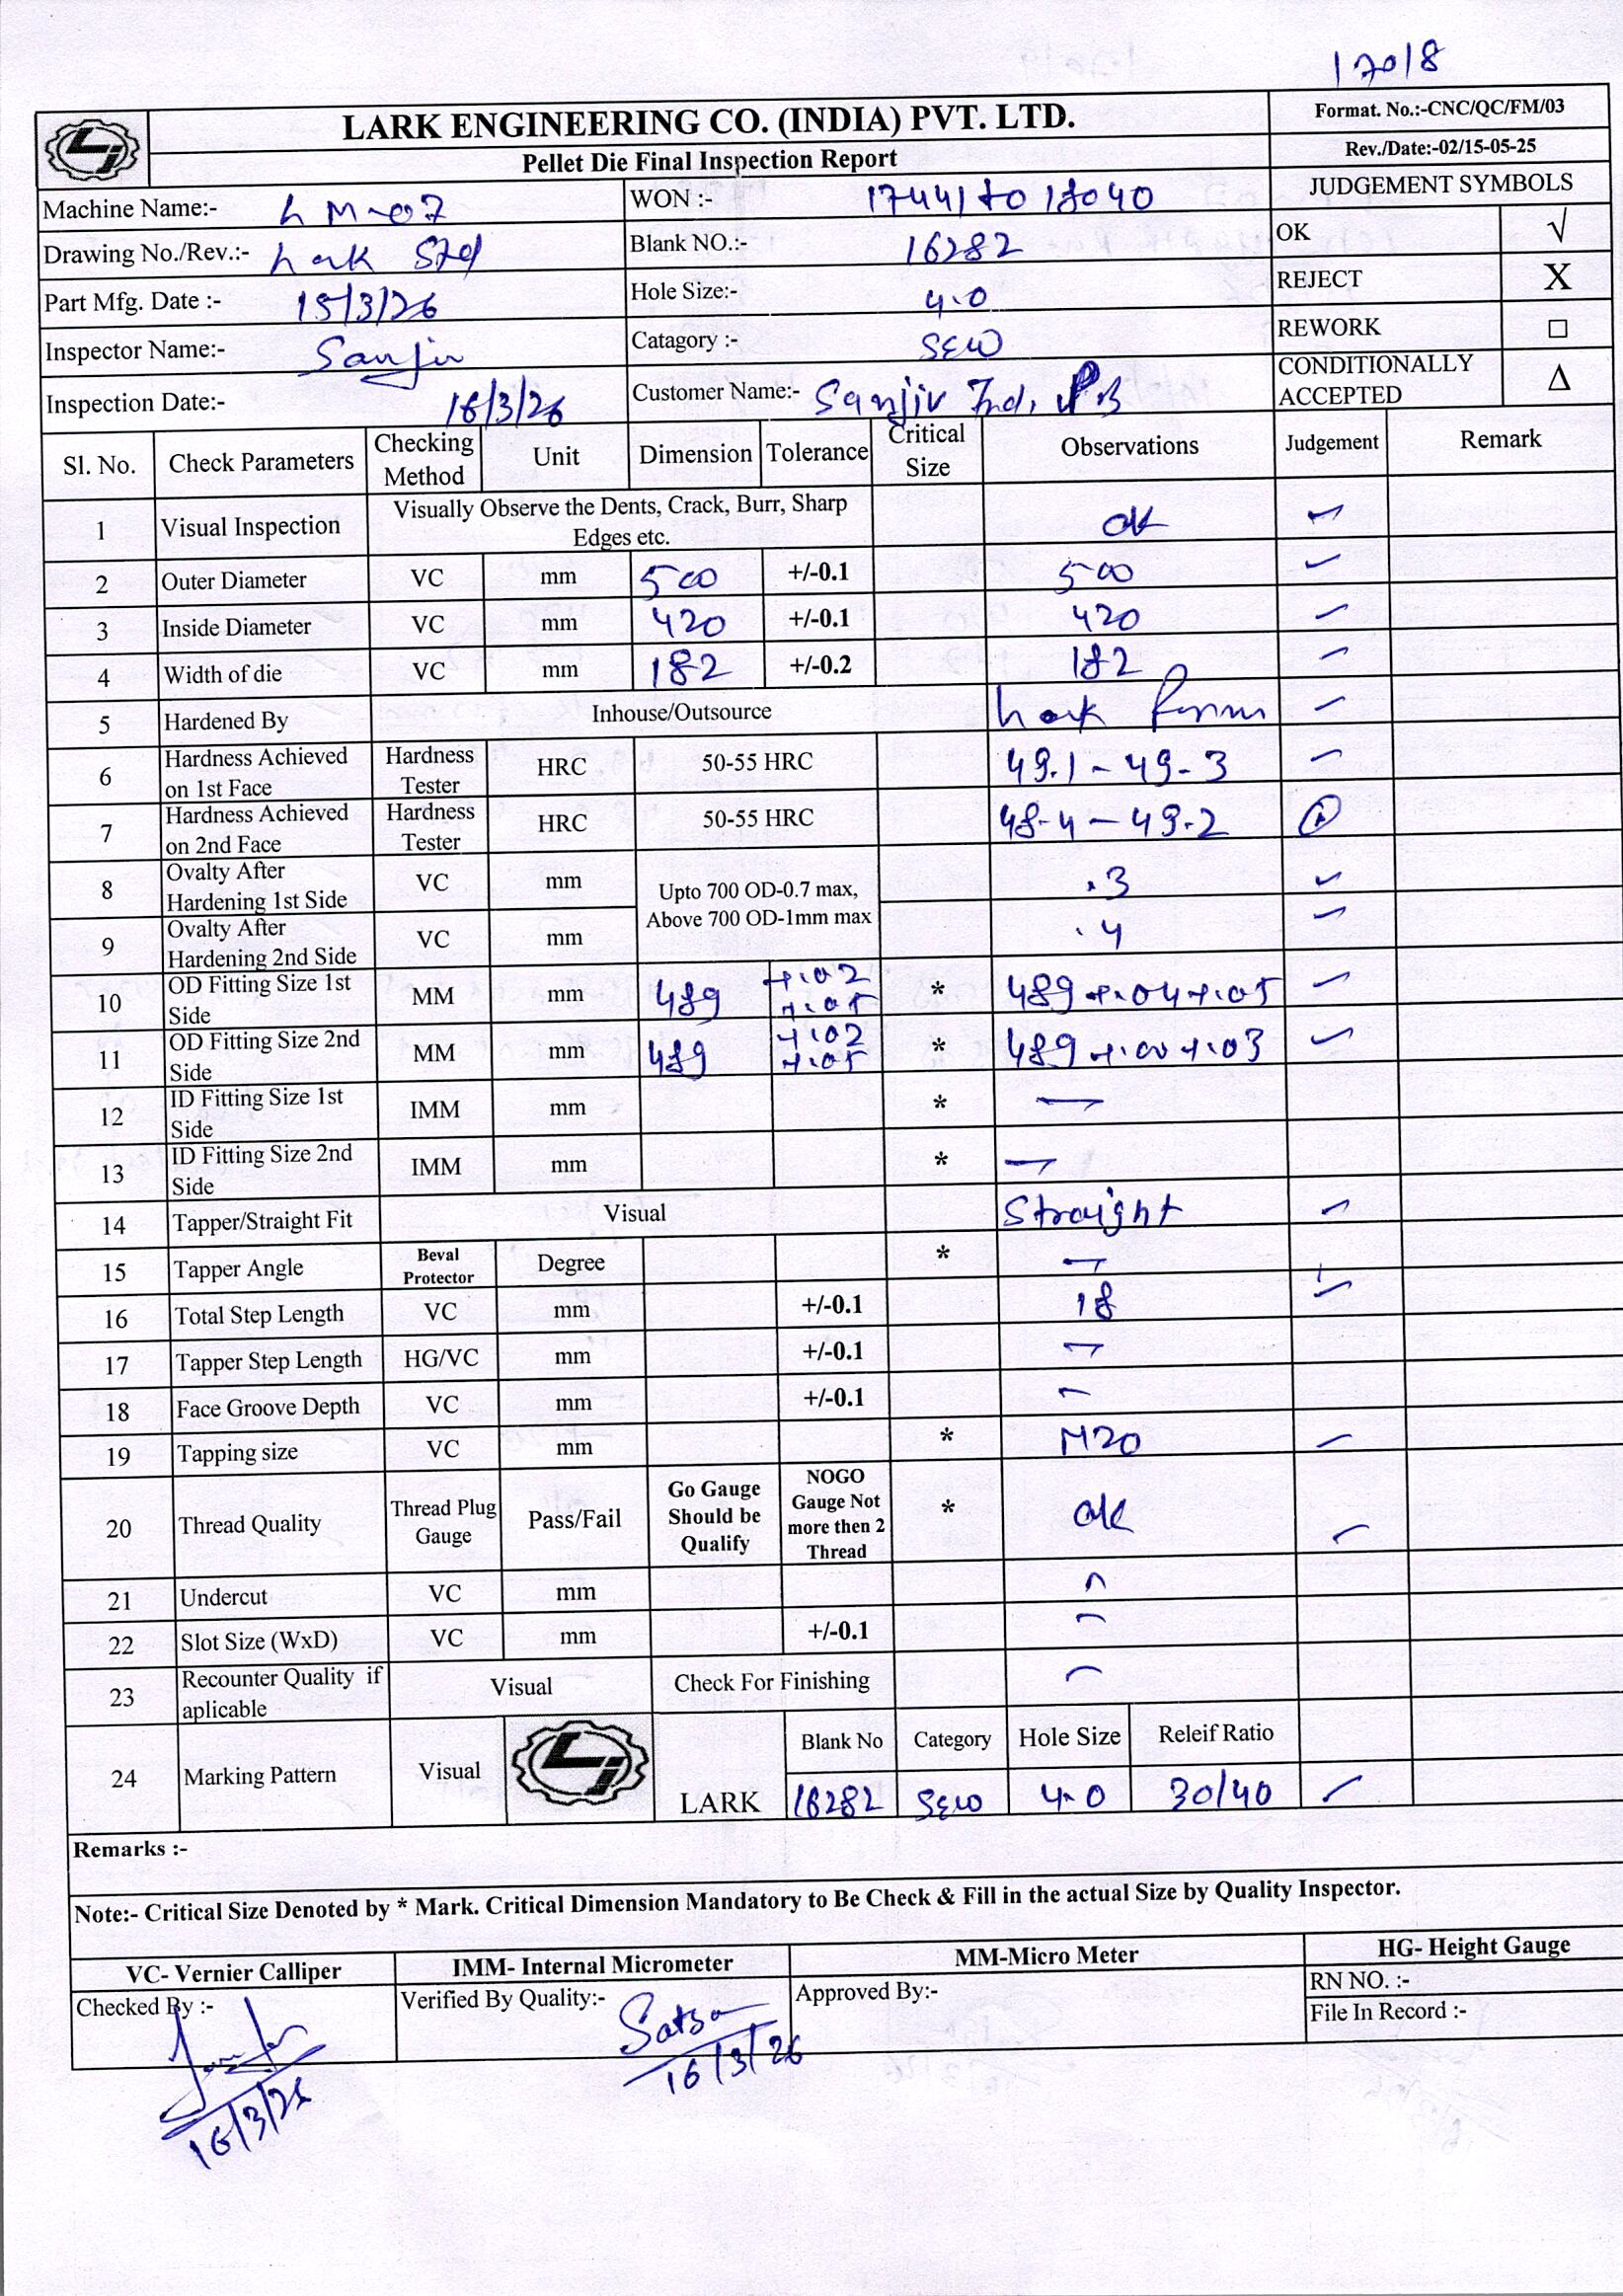 17018
LARK ENGINEERING CO. (INDIA) PVT. LTD.
Format. No.:-CNC/QC/FM/03
Pellet Die Final Inspection Report
Rev./Date:-02/15-05-25
Machine Name:- LM-07 WON :- 17441 to 18040 JUDGEMENT SYMBOLS
Drawing No./Rev.:- Lark Std Blank NO.:- 16282 OK √
Part Mfg. Date :- 15/3/26 Hole Size:- 4.0 REJECT X
Inspector Name:- Sanjiv Catagory :- SEW REWORK □
Inspection Date:- 16/3/26 Customer Name:- Sanjiv Ind, PB CONDITIONALLY ACCEPTED Δ
Sl. No. Check Parameters Checking Method Unit Dimension Tolerance Critical Size Observations Judgement Remark
1 Visual Inspection Visually Observe the Dents, Crack, Burr, Sharp Edges etc. ok ✓
2 Outer Diameter VC mm 500 +/-0.1 500 ✓
3 Inside Diameter VC mm 420 +/-0.1 420 ✓
4 Width of die VC mm 182 +/-0.2 182 ✓
5 Hardened By Inhouse/Outsource Lark ✓
6 Hardness Achieved on 1st Face Hardness Tester HRC 50-55 HRC 49.1 - 49-3 ✓
7 Hardness Achieved on 2nd Face Hardness Tester HRC 50-55 HRC 48-4 - 49-2
8 Ovalty After Hardening 1st Side VC mm Upto 700 OD-0.7 max, Above 700 OD-1mm max .3 ✓
9 Ovalty After Hardening 2nd Side VC mm .4 ✓
10 OD Fitting Size 1st Side MM mm 489 +.02 +.05 * 489 +.04 +.05 ✓
11 OD Fitting Size 2nd Side MM mm 489 +.02 +.05 * 489 +.00 +.03 ✓
12 ID Fitting Size 1st Side IMM mm * —
13 ID Fitting Size 2nd Side IMM mm * —
14 Tapper/Straight Fit Visual Straight ✓
15 Tapper Angle Beval Protector Degree * —
16 Total Step Length VC mm +/-0.1 18 ✓
17 Tapper Step Length HG/VC mm +/-0.1 —
18 Face Groove Depth VC mm +/-0.1 —
19 Tapping size VC mm * M20 ✓
20 Thread Quality Thread Plug Gauge Pass/Fail Go Gauge Should be Qualify NOGO Gauge Not more then 2 Thread * ok ✓
21 Undercut VC mm —
22 Slot Size (WxD) VC mm +/-0.1 —
23 Recounter Quality if aplicable Visual Check For Finishing —
24 Marking Pattern Visual LARK Blank No Category Hole Size Releif Ratio
16282 SEW 4.0 30/40 ✓
Remarks :-
Note:- Critical Size Denoted by * Mark. Critical Dimension Mandatory to Be Check & Fill in the actual Size by Quality Inspector.
VC- Vernier Calliper IMM- Internal Micrometer MM-Micro Meter HG- Height Gauge
Checked By :- Verified By Quality:- Approved By:- RN NO. :-
File In Record :-
16/3/26
16/3/26